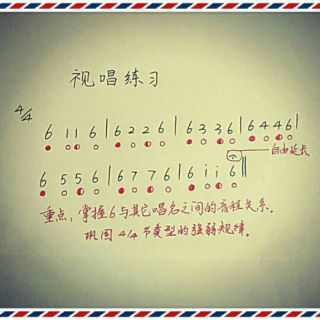 视唱练习
4/4
6 1 1 6 | 6 2 2 6 | 6 3 3 6 | 6 4 4 6 |
自由延长
6 5 5 6 | 6 7 7 6 | 6 i i 6 ‖
重点：掌握6与其它唱名之间的音程关系。
巩固4/4节奏型的强弱规律。